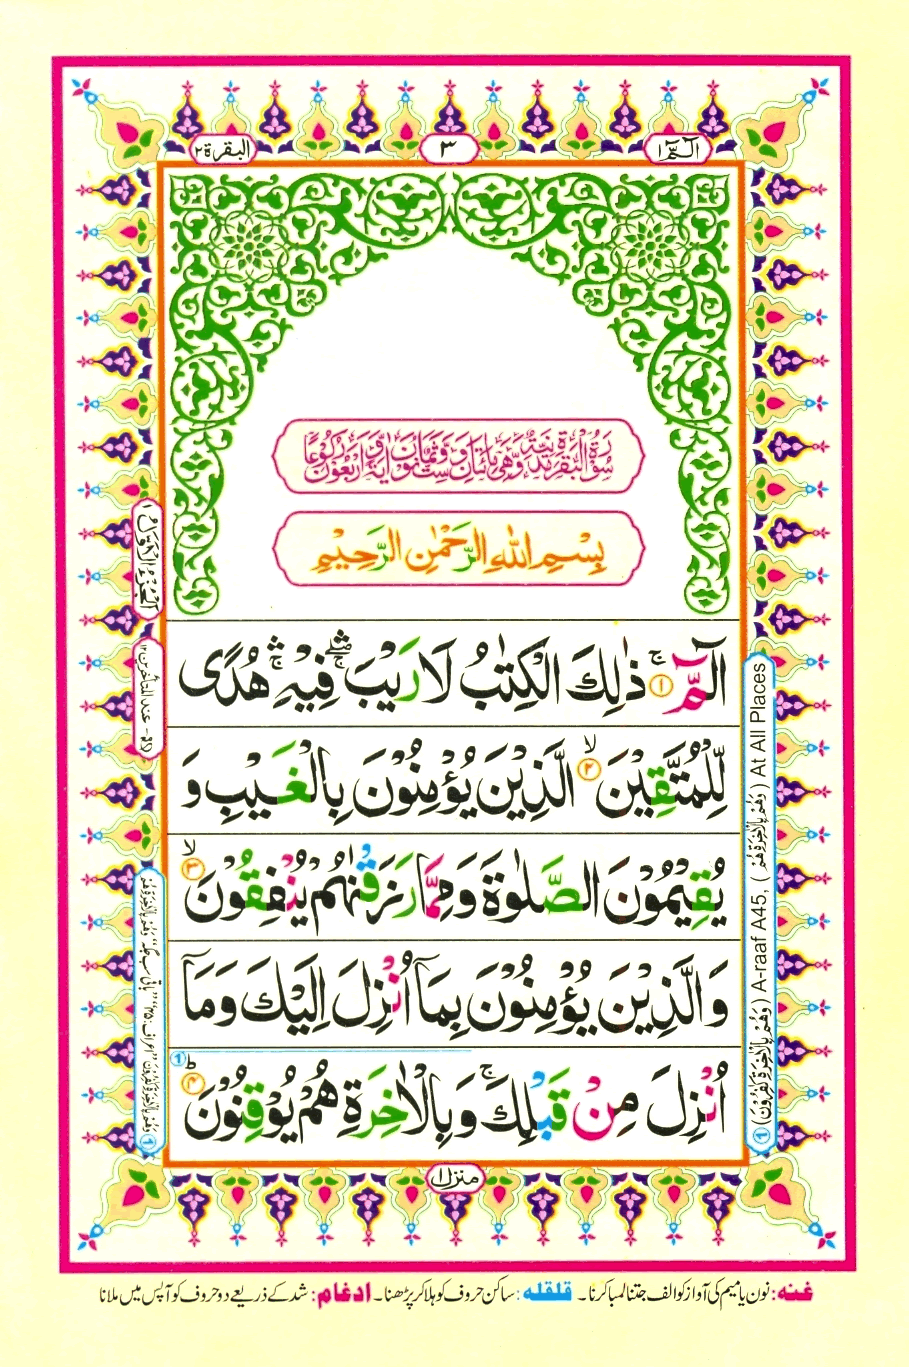 الٓمّٓ ١
٣
البقرة ٢
سُوْرَةُ الْبَقَرَةِ مَدَنِيَّةٌ وَّهِيَ مِائَتَانِ وَسِتٌّ وَّثَمَانُوْنَ اٰيَةً وَّاَرْبَعُوْنَ رُكُوْعًا
بِسْمِ اللهِ الرَّحْمٰنِ الرَّحِيْمِ
الٓمّٓ ۚ ١ ذٰلِكَ الْكِتٰبُ لَا رَيْبَ ۛۖۚ فِيْهِ ۛۚ هُدًى
لِّلْمُتَّقِيْنَ ۙ ٢ الَّذِيْنَ يُؤْمِنُوْنَ بِالْغَيْبِ وَ
يُقِيْمُوْنَ الصَّلٰوةَ وَمِمَّا رَزَقْنٰهُمْ يُنْفِقُوْنَ ۙ ٣
وَالَّذِيْنَ يُؤْمِنُوْنَ بِمَآ اُنْزِلَ اِلَيْكَ وَمَآ
اُنْزِلَ مِنْ قَبْلِكَ ۚ وَبِالْاٰخِرَةِ هُمْ يُوْقِنُوْنَ ؕ ٤ ①
① (وَهُمْ بِالْاٰخِرَةِ كٰفِرُوْنَ) A-raaf A45, (وَهُمْ بِالْاٰخِرَةِ هُمْ) At All Places
الجزء الاول ١
منزل ١
غنه: نون یا میم کی آواز کو الف جتنا لمبا کرنا۔ قلقله: ساکن حروف کو ہلا کر پڑھنا۔ ادغام: شد کے ذریعے دو حروف کو آپس میں ملانا